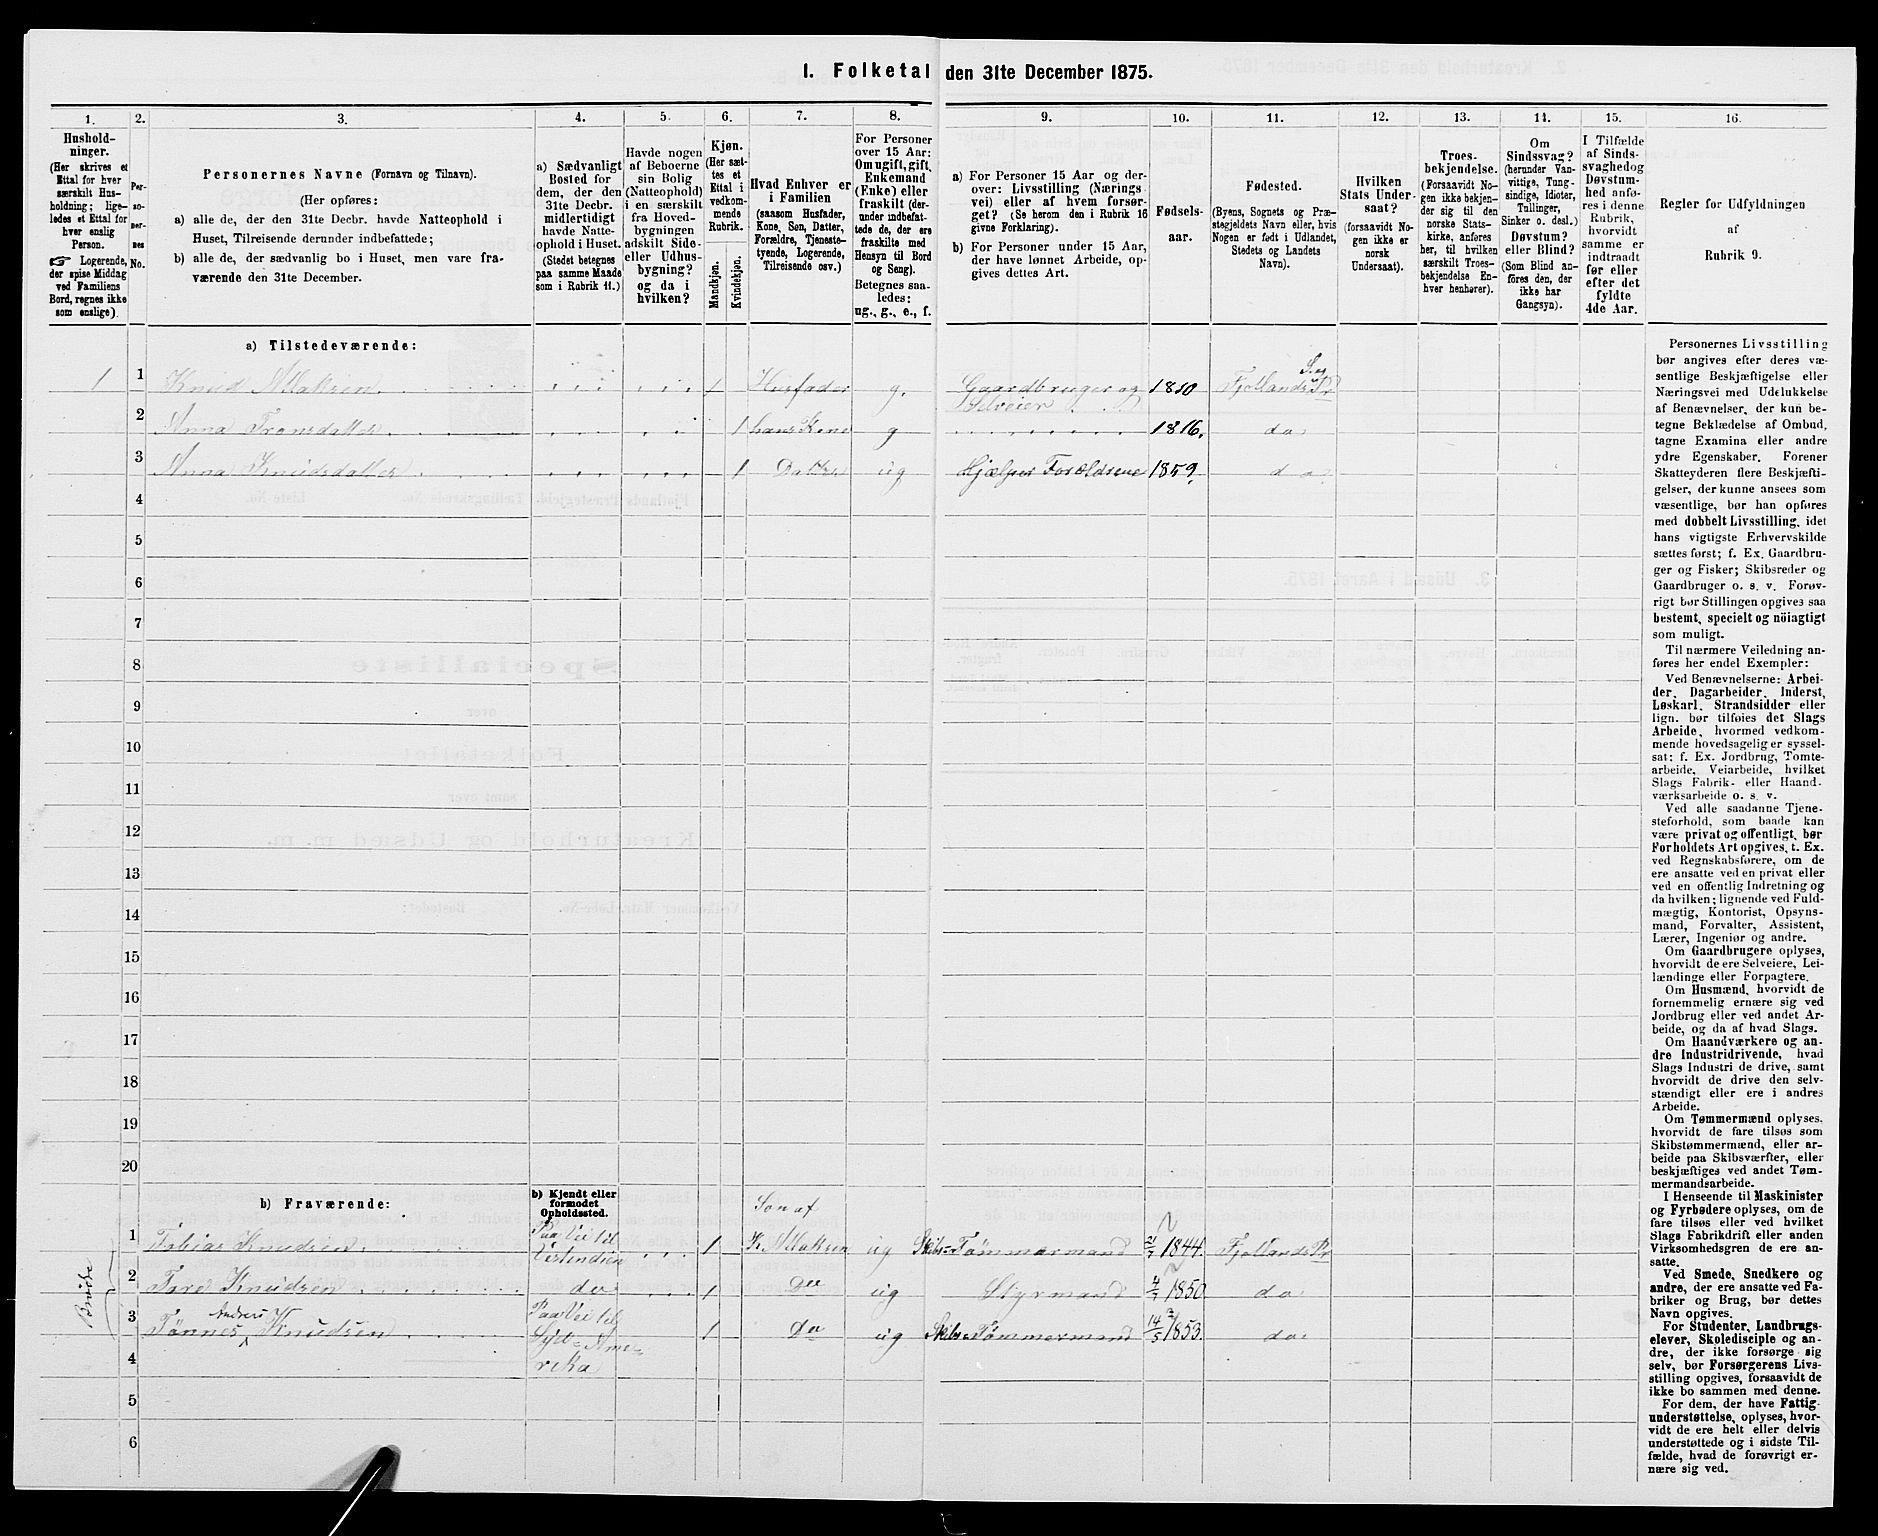 1. Folketal den 31te December 1875.
1. 2. 3. 4. 5. 6. 7. 8. 9. 10. 11. 12. 13. 14. 15. 16.
Hushold-
ninger.
(Her skrives et
Ettal for hver
særskilt Hus-
holdning; lige-
ledes et Ettal for
hver enslig
Person.
☞ Logerende,
der spise Middag
ved Familiens
Bord, regnes ikke
som enslige).
Per-
so-
ner-
nes
No.
Personernes Navne (Fornavn og Tilnavn).
(Her opføres:
a) alle de, der den 31te Decbr. havde Natteophold i
Huset, Tilreisende derunder indbefattede;
b) alle de, der sædvanlig bo i Huset, men vare fra-
værende den 31te December.
a) Sædvanligt
Bosted for
dem, der den
31te Decbr.
midlertidigt
havde Natte-
ophold i Huset.
(Stedet betegnes
paa samme Maade
som i Rubrik 11.)
Havde nogen
af Beboerne
sin Bolig
(Natteophold)
i en særskilt
fra Hoved-
bygningen
adskilt Side-
eller Udhus-
bygning?
og da i
hvilken?
Kjøn.
(Her sæt-
tes et
Ettal i
vedkom-
mende
Rubrik.
Mandkjøn.
Kvindekjøn.
Hvad Enhver er
i Familien
(saasom Husfader,
Kone, Søn, Datter,
Forældre, Tjeneste-
tyende, Logerende,
Tilreisende osv.)
For Personer
over 15 Aar:
Om ugift, gift,
Enkemand
(Enke) eller
fraskilt (der-
under indbefat-
tede de, der ere
fraskilte med
Hensyn til Bord
og Seng).
Betegnes saa-
ledes:
ug., g., e., f.
a) For Personer 15 Aar og der-
over: Livsstilling (Nærings-
vei) eller af hvem forsør-
get? (Se herom den i Rubrik 16
givne Forklaring).
b) For Personer under 15 Aar,
der have lønnet Arbeide, op-
gives dettes Art.
Fødsels-
aar.
Fødested.
(Byens, Sognets og Præ-
stegjeldets Navn eller, hvis
Nogen er født i Udlandet,
Stedets og Landets
Navn).
Hvilken
Stats Under-
saat?
(forsaavidt No-
gen ikke er
norsk
Undersaat).
Troes-
bekjendelse.
(Forsaavidt No-
gen ikke bekjen-
der sig til den
norske Stats-
kirke, anføres
her, til hvilken
særskilt Troes-
bekjendelse En-
hver henhører).
Om
Sindssvag?
(herunder Van-
vittige, Tung-
sindige, Idioter,
Tullinger,
Sinker o. desl.)
Døvstum?
eller Blind?
(Som Blind an-
føres den, der
ikke har
Gangsyn).
I Tilfælde
af Sinds-
svaghed og
Døvstum-
hed anfø-
res i denne
Rubrik,
hvorvidt
samme er
indtraadt
før eller
efter det
fyldte
4de Aar.
Regler for Udfyldningen
af
Rubrik 9.
a) Tilstedeværende:
1 1 Knud Atlaksen 1 Husfader g. Gaardbruger og Selveier 1810 Fjotlands S. og Pr
2 Anna Tronsdatter 1 hans Kone g 1816. do
3 Anna Knudsdatter 1 Datter ug Hjælper Forældrene 1859. do
4
5
6
7
8
9
10
11
12
13
14
15
16
17
18
19
20
b) Fraværende:
b) Kjendt eller
formodet
Opholdssted.
1 Tobias Knudsen Paa Vei til Vestindien 1 Søn af K Atlaksen ug Skibs=Tømmermand 1844. Fjotlands Pr
2 Tore Knudsen do 1 Do ug Styrmand 1850 do
3 Tønnes Andreas Knudsen Paa Vei til Syd=Amerika 1 Do ug Skibs=Tømmermand 14/5 1853. do
4
5
6
Personernes Livsstilling
bør angives efter deres væ-
sentlige Beskjæftigelse eller
Næringsvei med Udelukkelse
af Benævnelser, der kun be-
tegne Beklædelse af Ombud,
tagne Examina eller andre
ydre Egenskaber. Forener
Skatteyderen flere Beskjæfti-
gelser, der kunne ansees som
væsentlige, bør han opføres
med dobbelt Livsstilling, idet
hans vigtigste Erhvervskilde
sættes først; f. Ex. Gaardbru-
ger og Fisker; Skibsreder og
Gaardbruger o. s. v. Forøv-
rigt bør Stillingen opgives saa
bestemt, specielt og nöiagtigt
som muligt.
Til nærmere Veiledning an-
føres her endel Exempler:
Ved Benævnelserne: Arbei-
der, Dagarbeider, Inderst,
Løskarl, Strandsidder eller
lign. bør tilføies det Slags
Arbeide, hvormed vedkom-
mende hovedsagelig er syssel-
sat; f. Ex. Jordbrug, Tomte-
arbeide, Veiarbeide, hvilket
Slags Fabrik- eller Haand-
værksarbeide o. s. v.
Ved alle saadanne Tjene-
steforhold, som baade kan
være privat og offentligt, bør
Forholdets Art opgives, t. Ex.
ved Regnskabsførere, om de
ere ansatte ved en privat eller
ved en offentlig Indretning og
da hvilken; lignende ved Fuld-
mægtig, Kontorist, Opsyns-
mand, Forvalter, Assistent,
Lærer, Ingeniør og andre.
Om Gaardbrugere oplyses,
hvorvidt de ere Selveiere, Lei-
lændinge eller Forpagtere.
Om Husmænd, hvorvidt de
fornemmelig ernære sig ved
Jordbrug eller ved andet Ar-
beide, og da af hvad Slags.
Om Haandværkere og an-
dre Industridrivende, hvad
Slags Industri de drive, samt
hvorvidt de drive den selv-
stændigt eller ere i andres
Arbeide.
Om Tømmermænd oplyses,
hvorvidt de fare tilsøs som
Skibstømmermænd, eller ar-
beide paa Skibsværfter, eller
beskjæftiges ved andet Tøm-
mermandsarbeide.
I Henseende til Maskinister
og Fyrbødere oplyses, om de
fare tilsøs eller ved hvilket
Slags Fabrikdrift eller anden
Virksomhedsgren de ere an-
satte.
Ved Smede, Snedkere og
andre, der ere ansatte ved Fa-
briker og Brug, bør dettes
Navn opgives.
For Studenter, Landbrugs-
elever, Skoledisciple og an-
dre, der ikke forsørge sig
selv, bør Forsørgerens Livs-
stilling opgives, forsaavidt de
ikke bo sammen med denne.
For dem, der have Fattig-
understøttelse, oplyses, hvor-
vidt de ere helt eller delvis
understøttede og i sidste Til-
fælde, hvad de forøvrigt er-
nære sig ved.